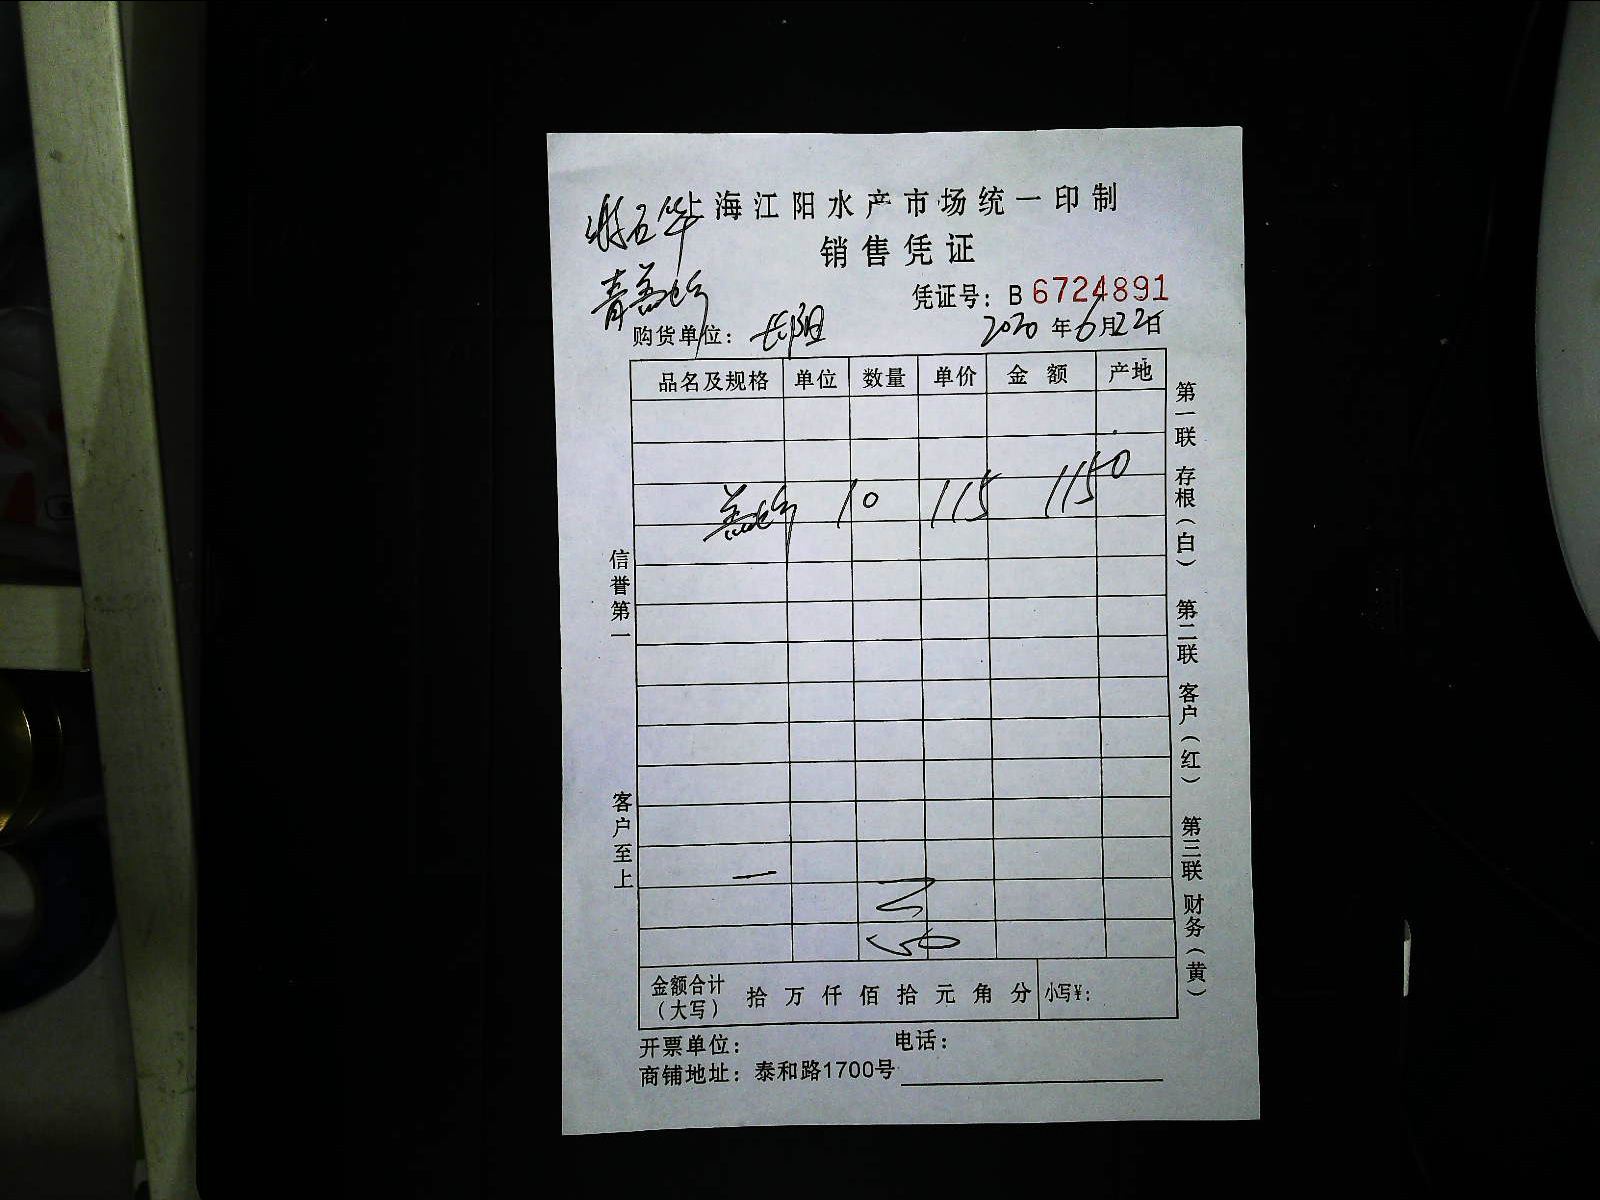 海江阳水产市场统一印制
销售凭证
凭证号：B 6724891
购货单位：长阳 2020年6月22日
品名及规格 单位 数量 单价 金额 产地
10 115 1150
一
金额合计（大写） 拾万仟佰拾元角分 小写¥：
开票单位： 电话：
商铺地址：泰和路1700号
信誉第一 客户至上
第一联 存根（白） 第二联 客户（红） 第三联 财务（黄）